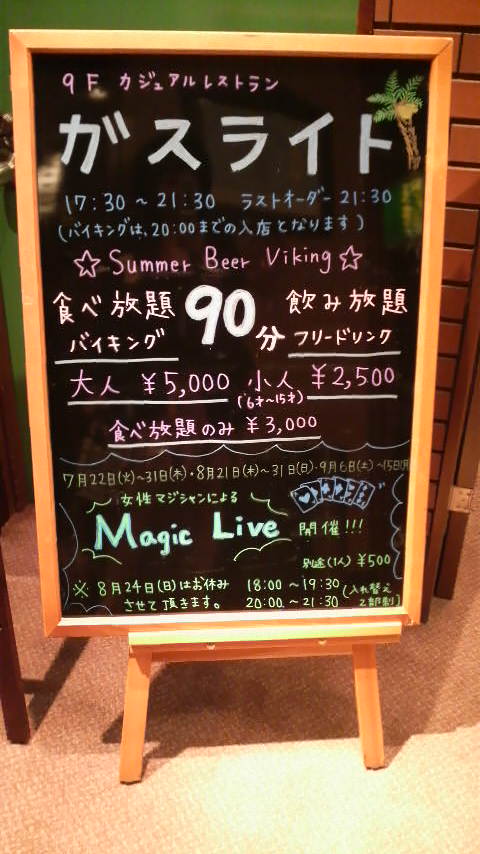 9F カジュアルレストラン
ガスライト
17:30 ~ 21:30 ラストオーダー 21:30
(バイキングは、20:00までの入店となります)
☆ Summer Beer Viking ☆
食べ放題 90分 飲み放題
バイキング フリードリンク
大人 ¥5,000 小人 ¥2,500
(6才~15才)
食べ放題のみ ¥3,000
7月22日(火)~31日(木)・8月21日(木)~31日(日)・9月6日(土)~15日(月)
女性マジシャンによる
Magic Live 開催!!!
別途(1人) ¥500
※ 8月24日(日)はお休み 18:00 ~ 19:30 (入れ替え
させて頂きます。 20:00 ~ 21:30 2部制)